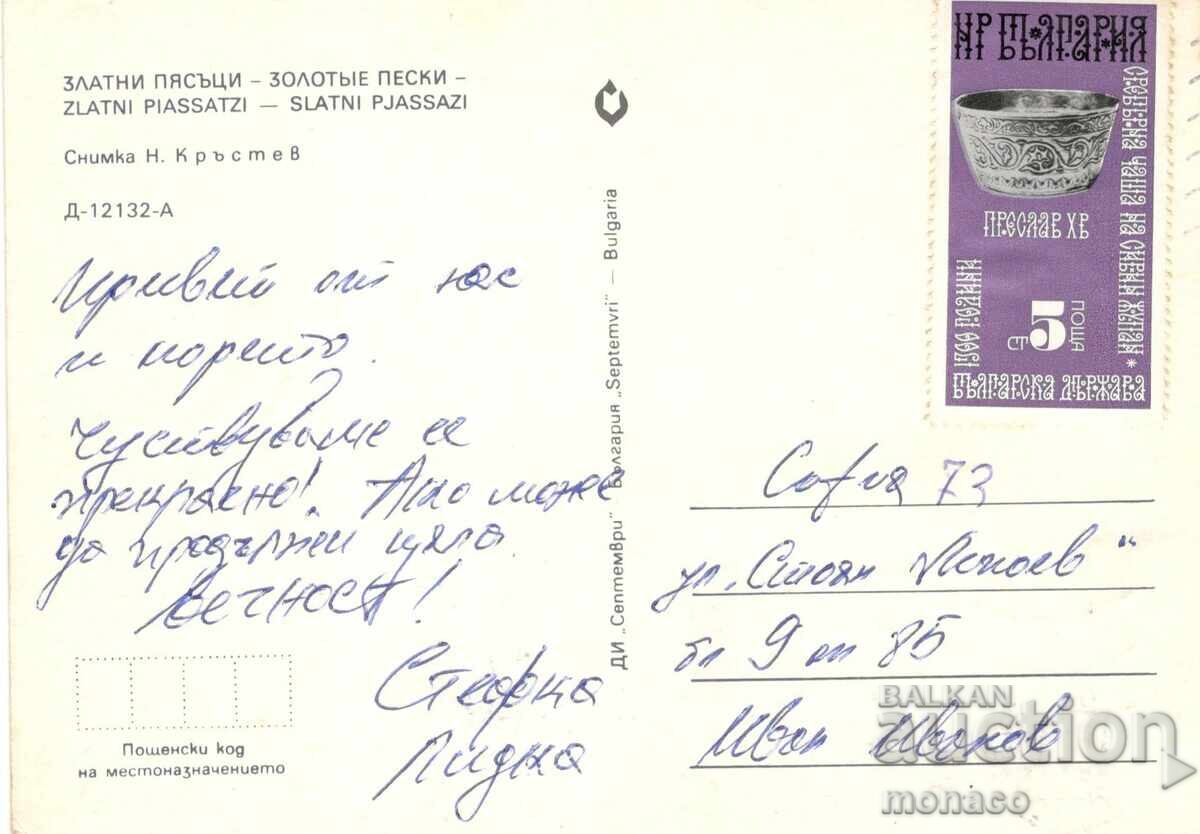 ЗЛАТНИ ПЯСЪЦИ – ЗОЛОТЫЕ ПЕСКИ –
ZLATNI PIASSATZI — SLATNI PJASSAZI
Снимка Н. Кръстев
Д-12132-А
Привет от нас
и морето.
Чуствуваме се
прекрасно! Ако може
да продължи цяла
вечност!
Стефка
Лидка
Пощенски код
на местоназначението
ДИ „Септември" България „Septemvri" — Bulgaria
НР БЪЛГАРИЯ
СРЕБЪРНА ЧАША НА СИВИН ЖУПАН
ПРЕСЛАВ ХВ
1300 ГОДИНИ
БЪЛГАРСКА ДЪРЖАВА
5 СТ
ПОЩА
София 73
ул. „Стоян
бл 9 ап 85
Иван Иванов
BALKAN
auction
monaco